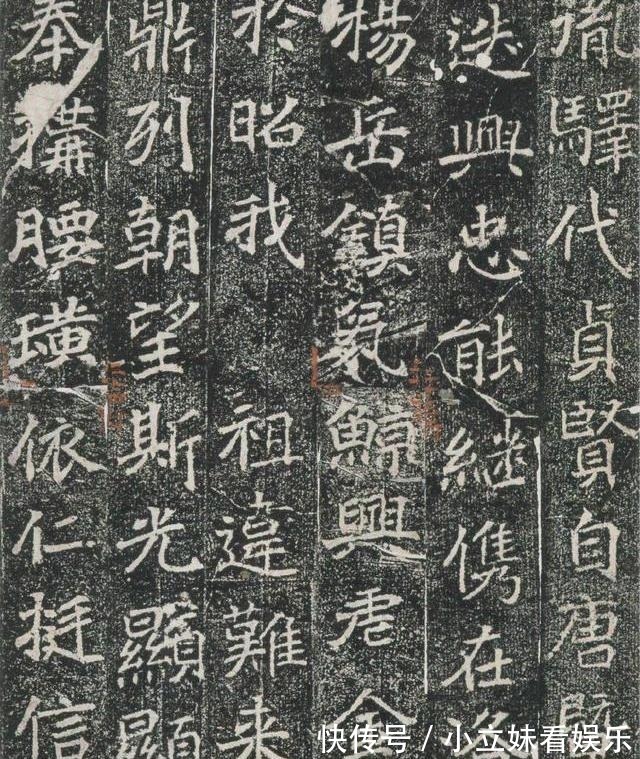 胤驛代貞賢自唐
迭興忠能繼儁在
楊岳鎮氣鯨興君
於昭我祖違難来
鼎列朝望斯光顯顯
奉搆腰璜依仁挺信
快传号/小立妹看娱乐